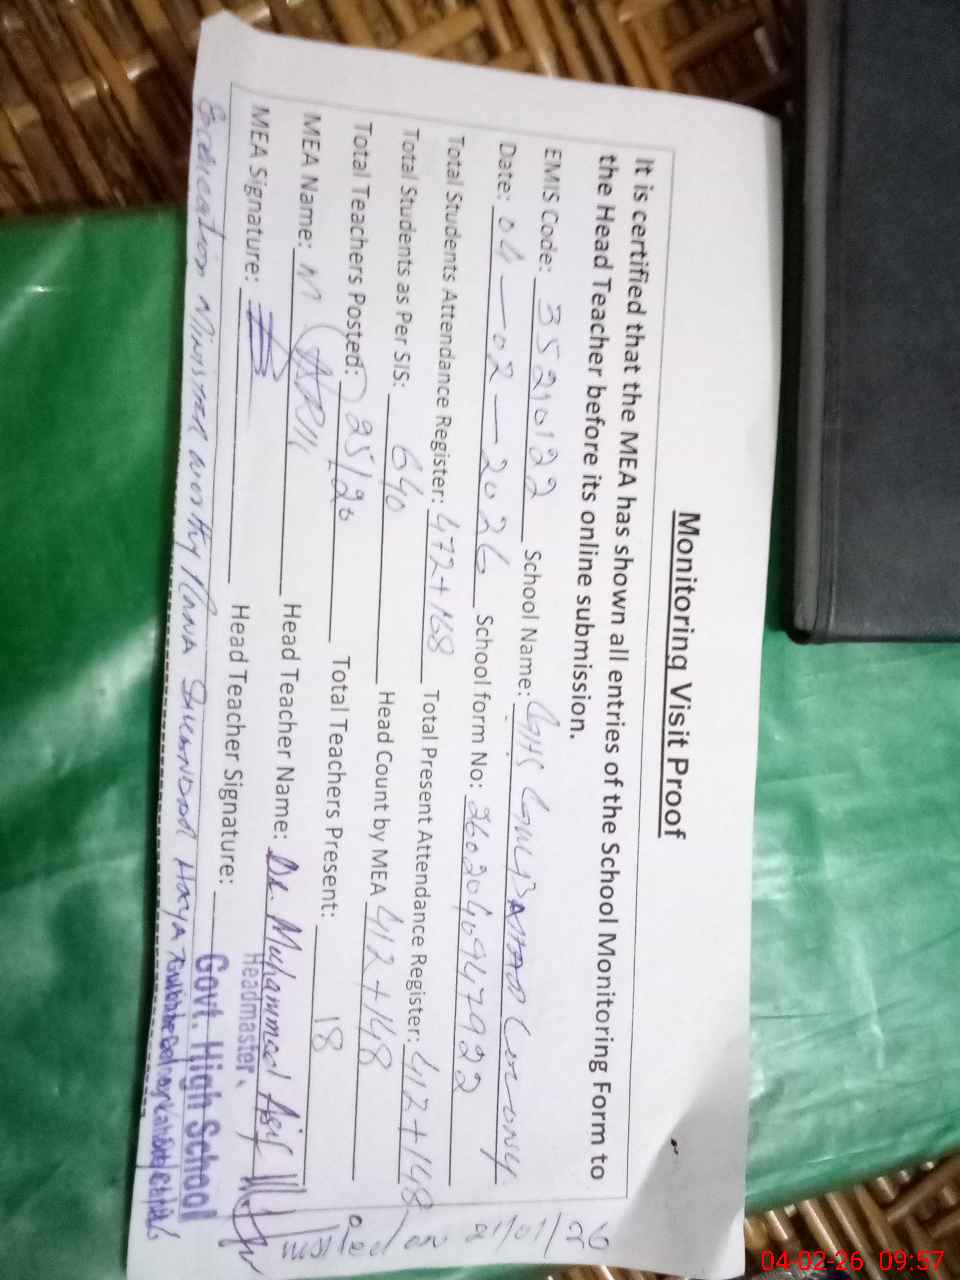 Monitoring Visit Proof
It is certified that the MEA has shown all entries of the School Monitoring Form to
the Head Teacher before its online submission.
EMIS Code: 35210122 School Name: GHS Gulbahar Colony
Date: 04-02-2026 School form No:
Total Students Attendance Register: 472+168 Total Present Attendance Register: 412+148
Total Students as Per SIS: 640 Head Count by MEA 412+148
Total Teachers Posted: 25/20 Total Teachers Present: 18
MEA Name: M Head Teacher Name: Dr. Muhammad Asif
MEA Signature: Head Teacher Signature:
Headmaster.
Govt. High School
Education Minister
04-02-26 09:57